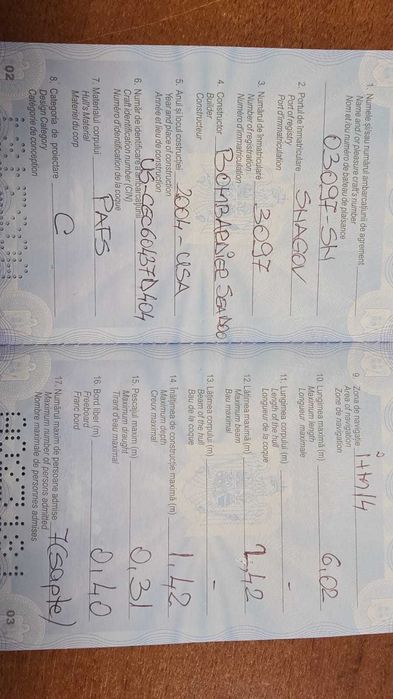 1. Numele și/sau numărul ambarcațiunii de agrement
Name and / or pleasure craft's number
Nom et /ou numéro de bateau de plaisance
03097-SN
2. Portul de înmatriculare
Port of registry
Port d'immatriculation
SNAGOV
3. Numărul de înmatriculare
Number of registration
Numéro d'immatriculation
3097
4. Constructor
Builder
Constructeur
BOMBARDIER
5. Anul și locul construcției
Year and place of construction
Année et lieu de construction
2004 - USA
6. Număr de identificare ambarcațiune
Craft identification number (CIN)
Numéro d'identification de la coque
7. Materialul corpului
Hull's Material
Matériel du corp
PAFS
8. Categoria de proiectare
Design Category
Catégorie de conception
C
02
9. Zona de navigație
Area of navigation
Zone de navigation
10. Lungimea maximă (m)
Maximum length
Longueur maximale
6,02
11. Lungimea corpului (m)
Length of the hull
Longueur de la coque
-
12. Lățimea maximă (m)
Maximum beam
Bau maximum
2,42
13. Lățimea corpului (m)
Beam of the hull
Bau de la coque
-
14. Înălțimea de construcție maximă (m)
Maximum depth
Creux maximal
1,42
15. Pescajul maxim (m)
Maximum draught
Tirant d'eau maximal
0,31
16. Bord liber (m)
Freeboard
Franc bord
0,40
17. Număru maxim de persoane admise
Maximum number of persons admitted
Nombre maximale de personnes admises
7 (șapte)
03